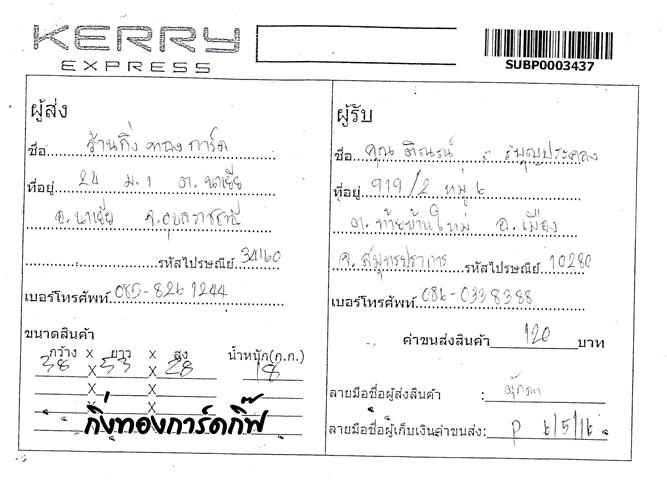 KERRY
EXPRESS
SUBP0003437
ผู้ส่ง
ชื่อ ร้านกิ่งทองการ์ด
ที่อยู่ 20 ม.1 ต.นาเยีย
อ.นาเยีย จ.อุบลราชธานี
รหัสไปรษณีย์ 34160
เบอร์โทรศัพท์ 085-8261244
ขนาดสินค้า
กว้าง X ยาว X สูง น้ำหนัก(ก.ก.)
38 X 53 X 28 18
X X
X X
X X
กิ่งทองการ์ดกิ๊ฟ
ผู้รับ
ชื่อ คุณ บุญประคลง
ที่อยู่ 919/2 หมู่ ๖
ต.ท้ายบ้านใหม่ อ.เมือง
จ.สมุทรปราการ รหัสไปรษณีย์ 10280
เบอร์โทรศัพท์ 086-0338388
ค่าขนส่งสินค้า 120 บาท
ลายมือชื่อผู้ส่งสินค้า :
ลายมือชื่อผู้เก็บเงินค่าขนส่ง: P ๖/5/1๖